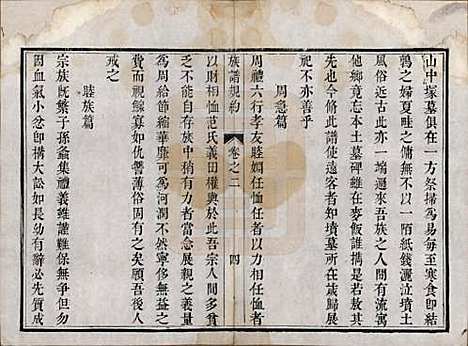 山中塚墓俱在一方祭掃為易每至寒食即結
鴉之婦夏畦之傭無不以一陌紙錢灑泣墳土
風俗近古此亦一端邇來吾族之人間有流寓
他鄉竟忘本土碑雖在麥飯誰攜是若敖其
先也今脩此譜使遠客者知墳墓所在歲歸展
祀不亦善乎
周急篇
周禮六行孝友睦婣任恤任者以力相任恤者
族譜規約
卷之二
四
以財相恤范氏義田權輿於此吾宗人間多貧
乏不能自存族中稍有力者當念展親之義量
為周給節縮華靡為河潤不然寧修不多
費而視鰥寡如仇讐薄俗間有之矣願吾後人
戒之
睦族篇
宗族既繁子孫螽集禮義維謹難保無爭但毋
因血氣小忿即搆大訟如長幼有辭必先質成